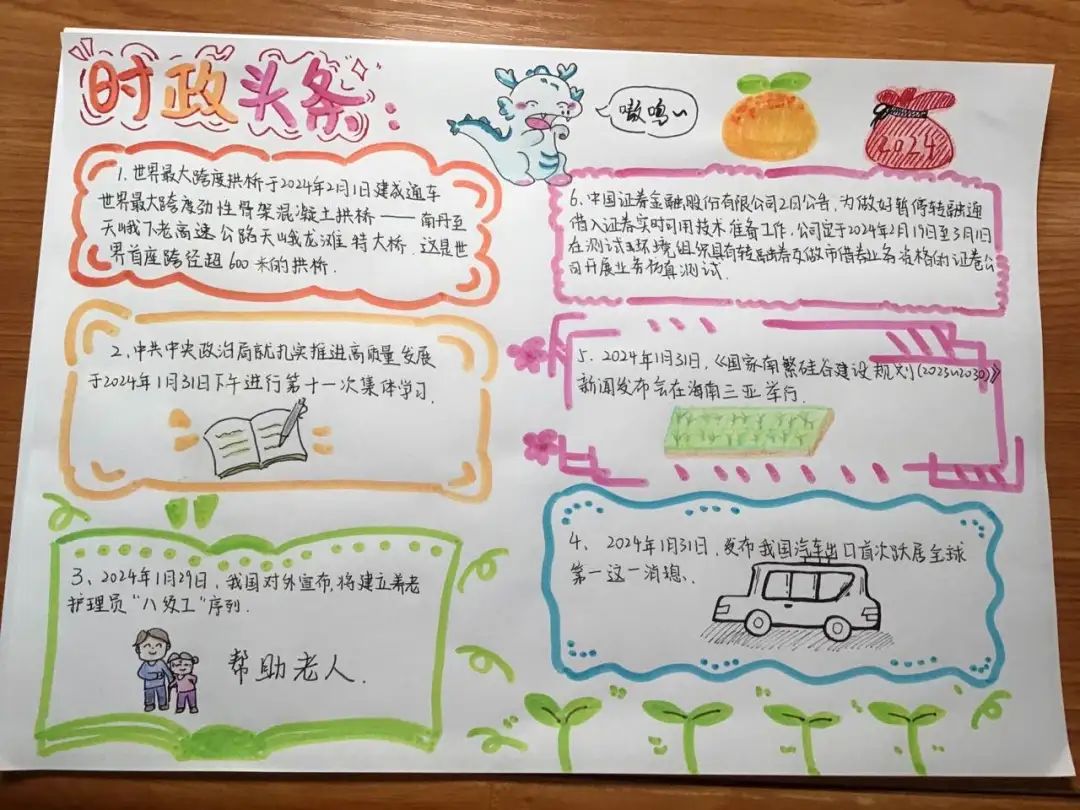 时政头条:
嗷呜~
2024
1.世界最大跨度拱桥于2024年2月1日建成通车
世界最大跨度劲性骨架混凝土拱桥——南丹至
天峨下老高速公路天峨龙滩特大桥.这是世
界首座跨径超600米的拱桥.
2、中共中央政治局就扎实推进高质量发展
于2024年1月31日下午进行第十一次集体学习.
3、2024年1月29日,我国对外宣布,将建立养老
护理员“八级工”序列.
帮助老人.
6、中国证券金融股份有限公司2月公告,为做好暂停转融通
借入证券实时可用技术准备工作,公司定于2024年2月19日至3月1日
在测试环境组织具有转融券及做市借券业务资格的证卷公
司开展业务仿真测试.
5、2024年1月31日,《国家南繁硅谷建设规划(2023~2030)》
新闻发布会在海南三亚举行.
4、2024年1月31日,发布我国汽车出口首次跃居全球
第一这一消息、